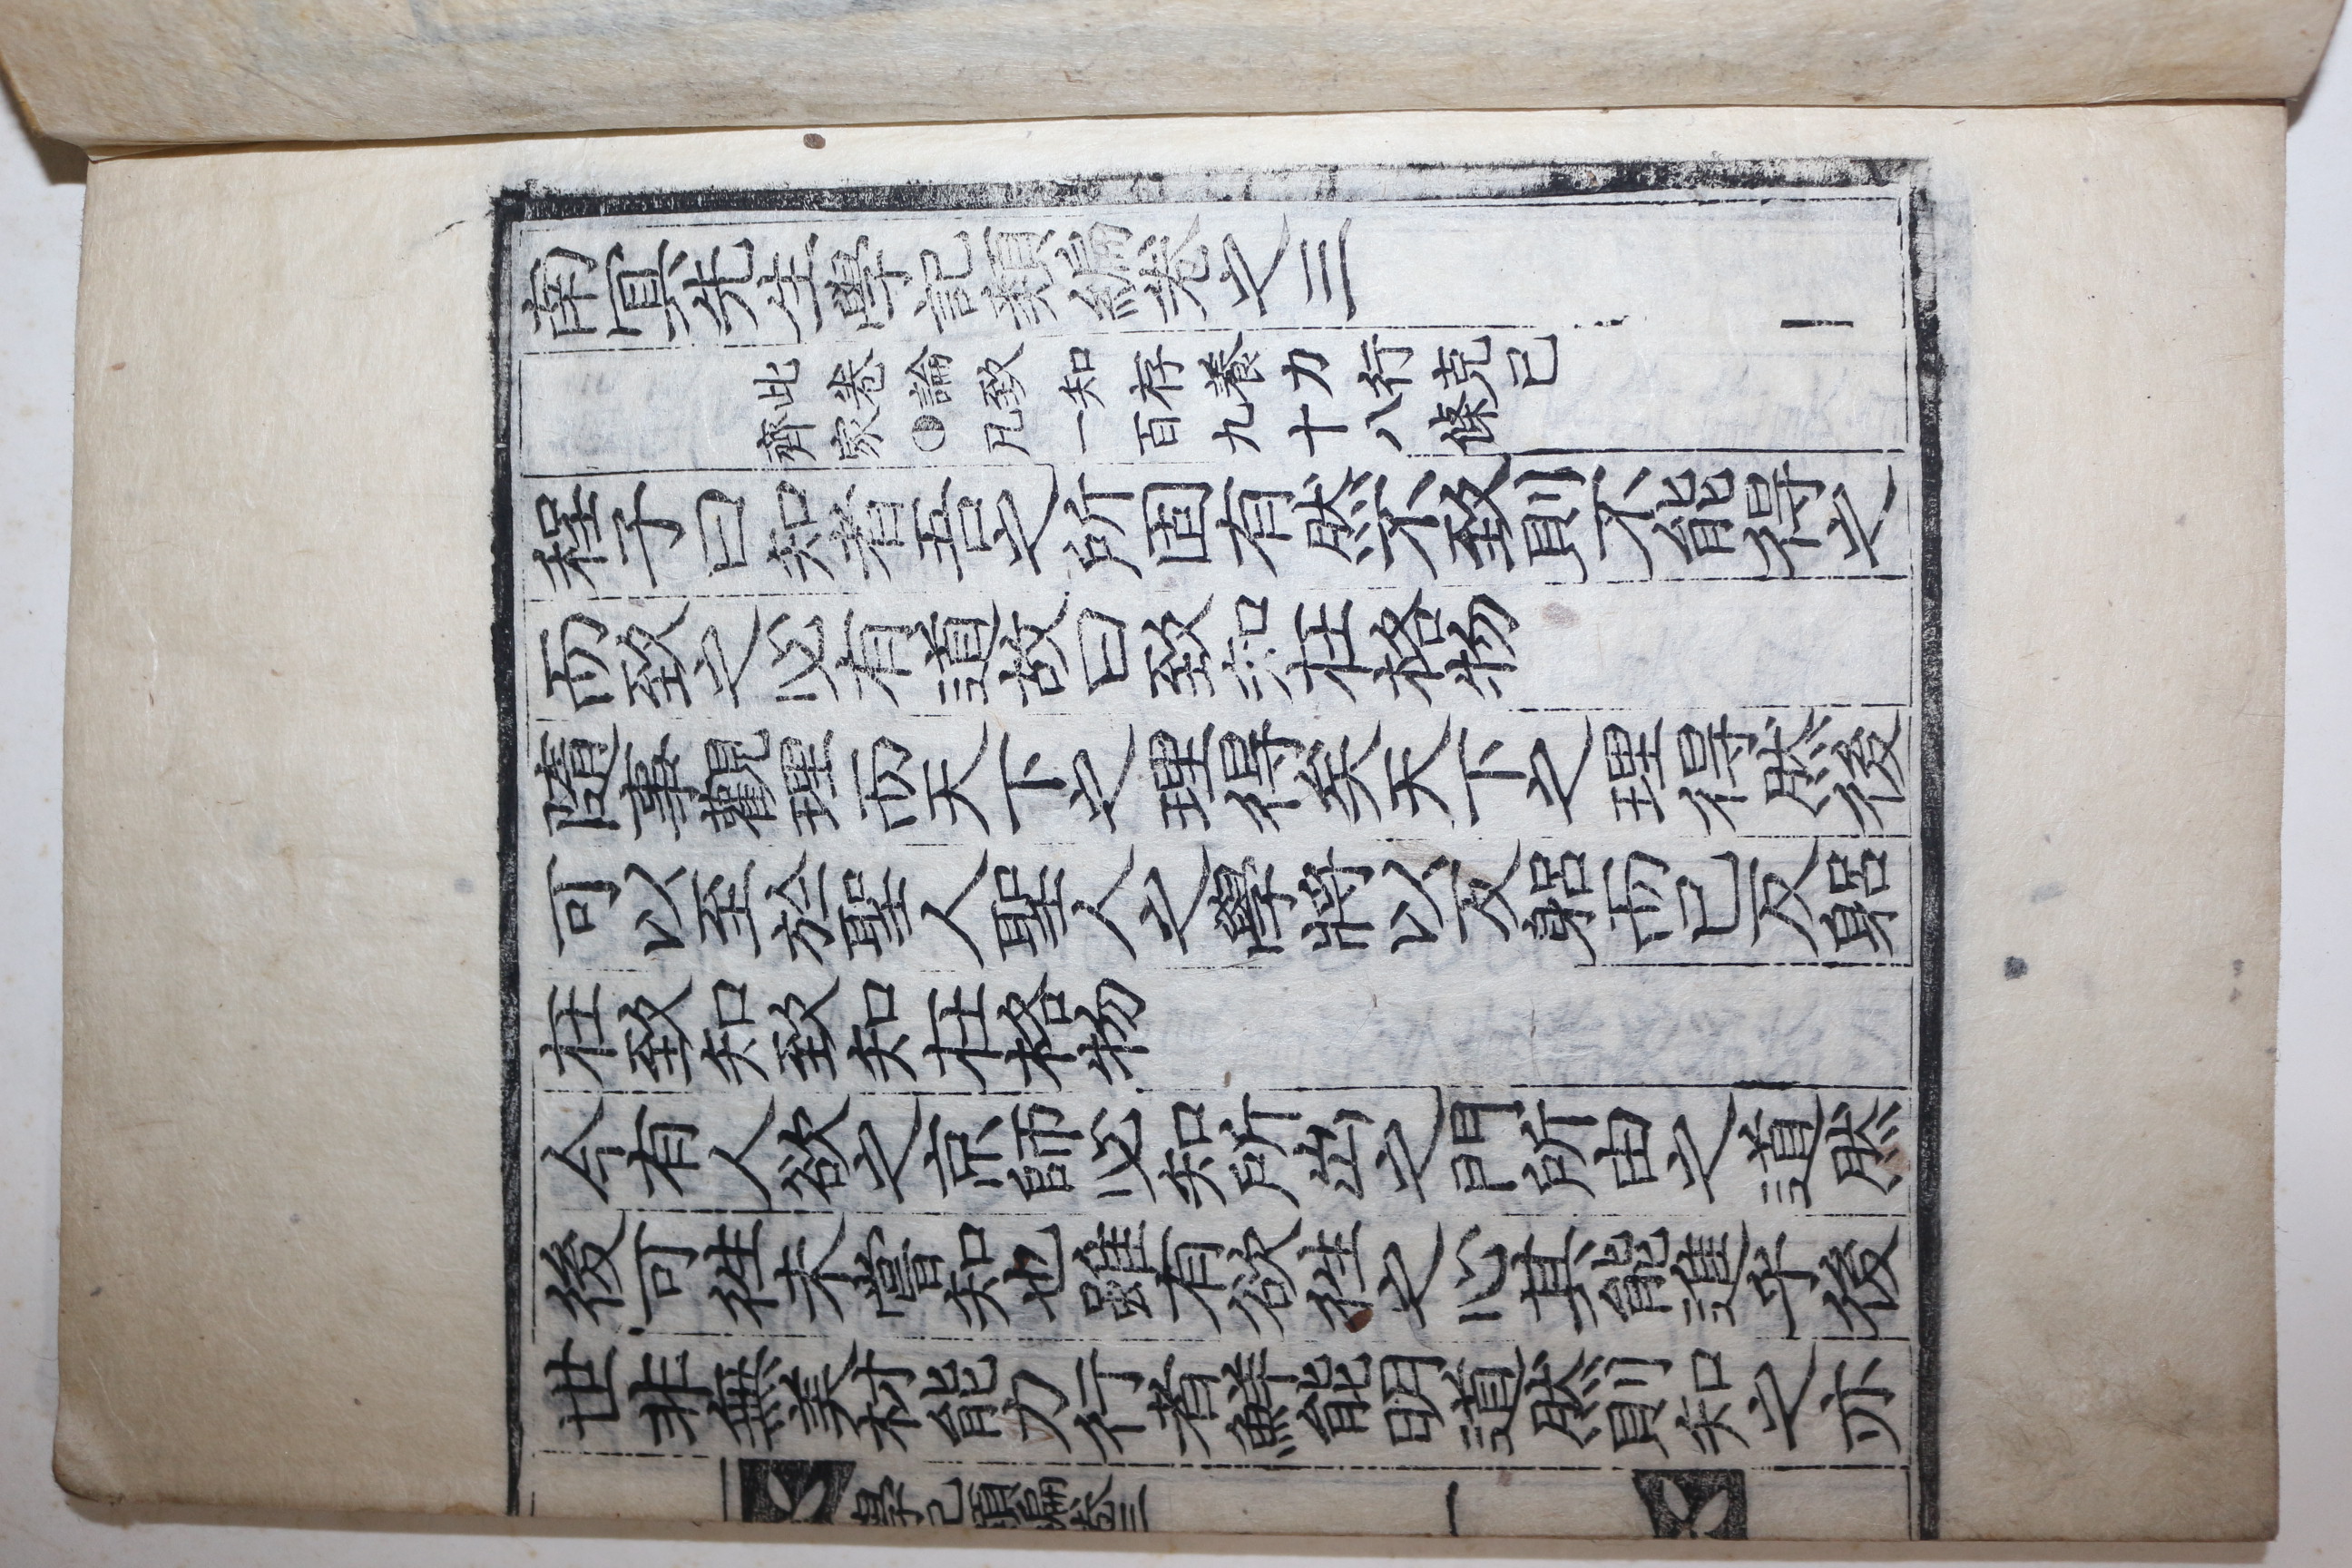 南冥先生學記類編卷之三
此卷論致知存養力行克己
齊家○凡一百九十八條
程子曰知者吾之所固有然不致則不能得之
而致之必有道故曰致知在格物
隨事觀理而天下之理得矣天下之理得然後
可以至於聖人聖人之學將以反躳而已反躳
在致知致知在格物
今有人欲之京師必知所出之門所由之道然
後可徃未嘗知也雖有欲徃之心其能進乎後
世非無美材能力行者鮮能明道然則知之亦
學記類編卷三
一